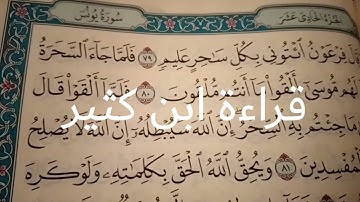 الجزء الحادي عشر سورة يونس
فِرْعَوْنُ ائْتُونِي بِكُلِّ سَاحِرٍ عَلِيمٍ ٧٩ فَلَمَّا جَاءَ السَّحَرَةُ
لَهُم مُّوسَىٰ أَلْقُوا مَا أَنتُم مُّلْقُونَ ٨٠ فَلَمَّا أَلْقَوْا قَالَ
قراءة ابن كثير
جِئْتُم بِهِ السِّحْرُ إِنَّ اللَّهَ سَيُبْطِلُهُ إِنَّ اللَّهَ لَا يُصْلِحُ
الْمُفْسِدِينَ ٨١ وَيُحِقُّ اللَّهُ الْحَقَّ بِكَلِمَاتِهِ وَلَوْ كَرِهَ